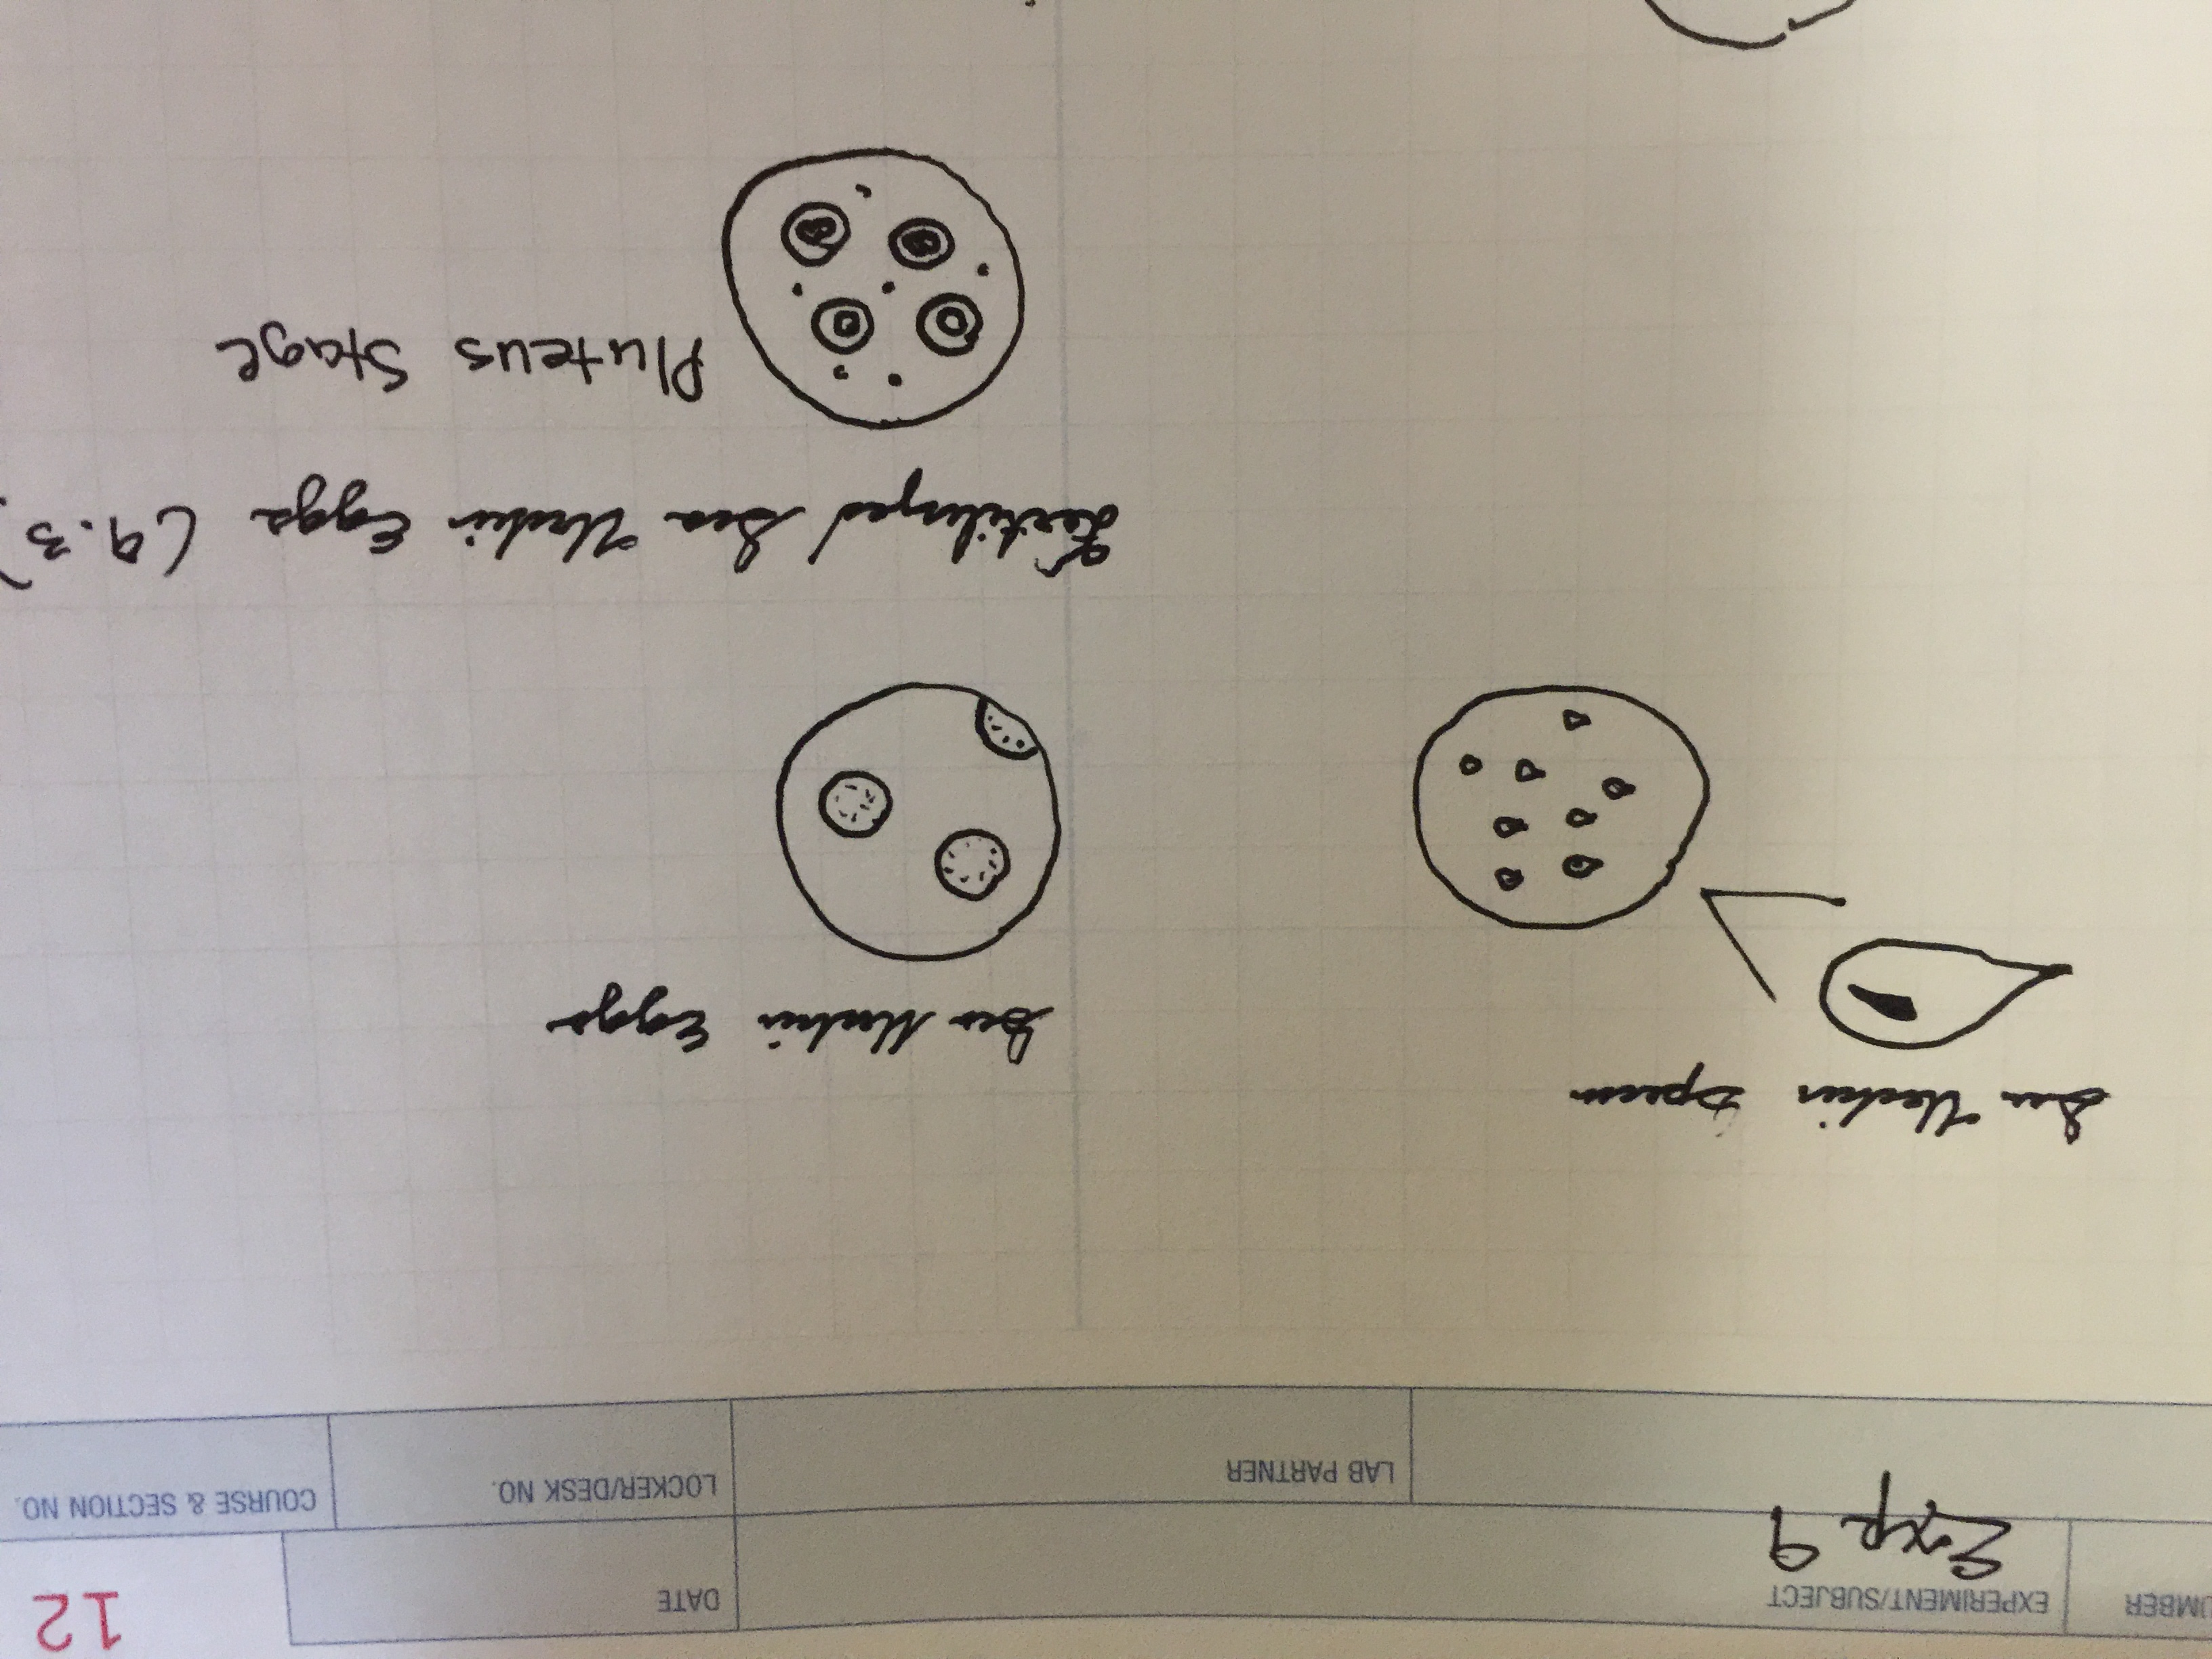 UMBER
EXPERIMENT/SUBJECT
Exp 9
DATE
12
LAB PARTNER
LOCKER/DESK NO.
COURSE & SECTION NO.
Sea Urchin Sperm
Sea Urchin Eggs
Fertilized Sea Urchin Eggs (9.3)
Pluteus Stage